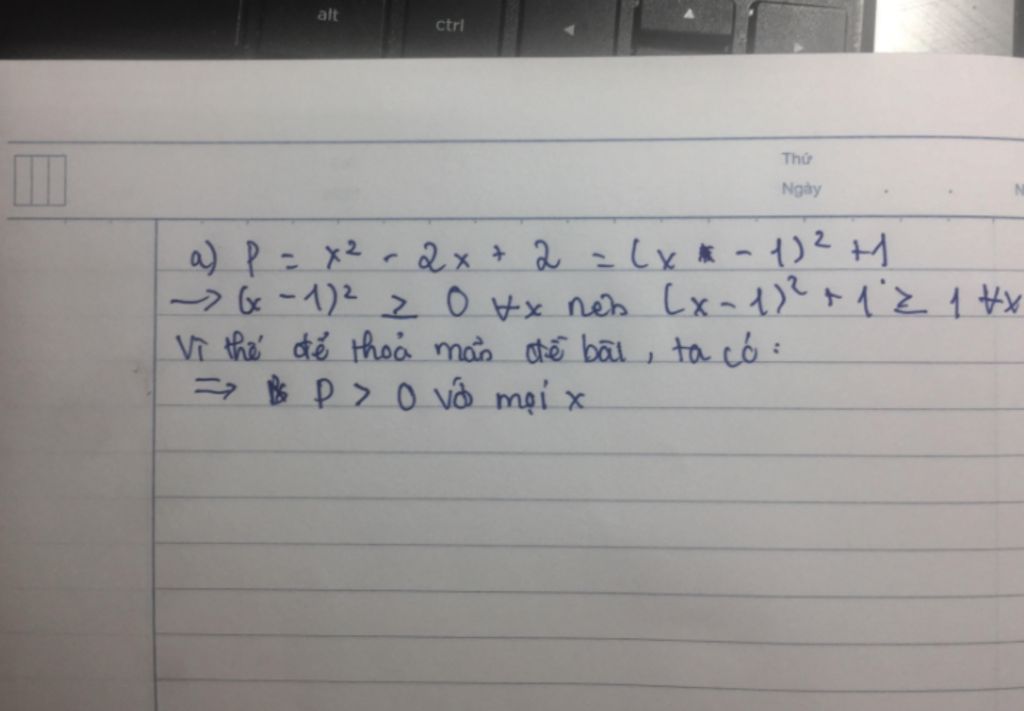 alt ctrl ◄ ▲ ►
Thứ
Ngày . . N
a) P = x² - 2x + 2 = (x - 1)² + 1
→ (x - 1)² ≥ 0 ∀x nên (x - 1)² + 1 ≥ 1 ∀x
Vì thế để thoả mãn đề bài, ta có:
⇒ P > 0 với mọi x